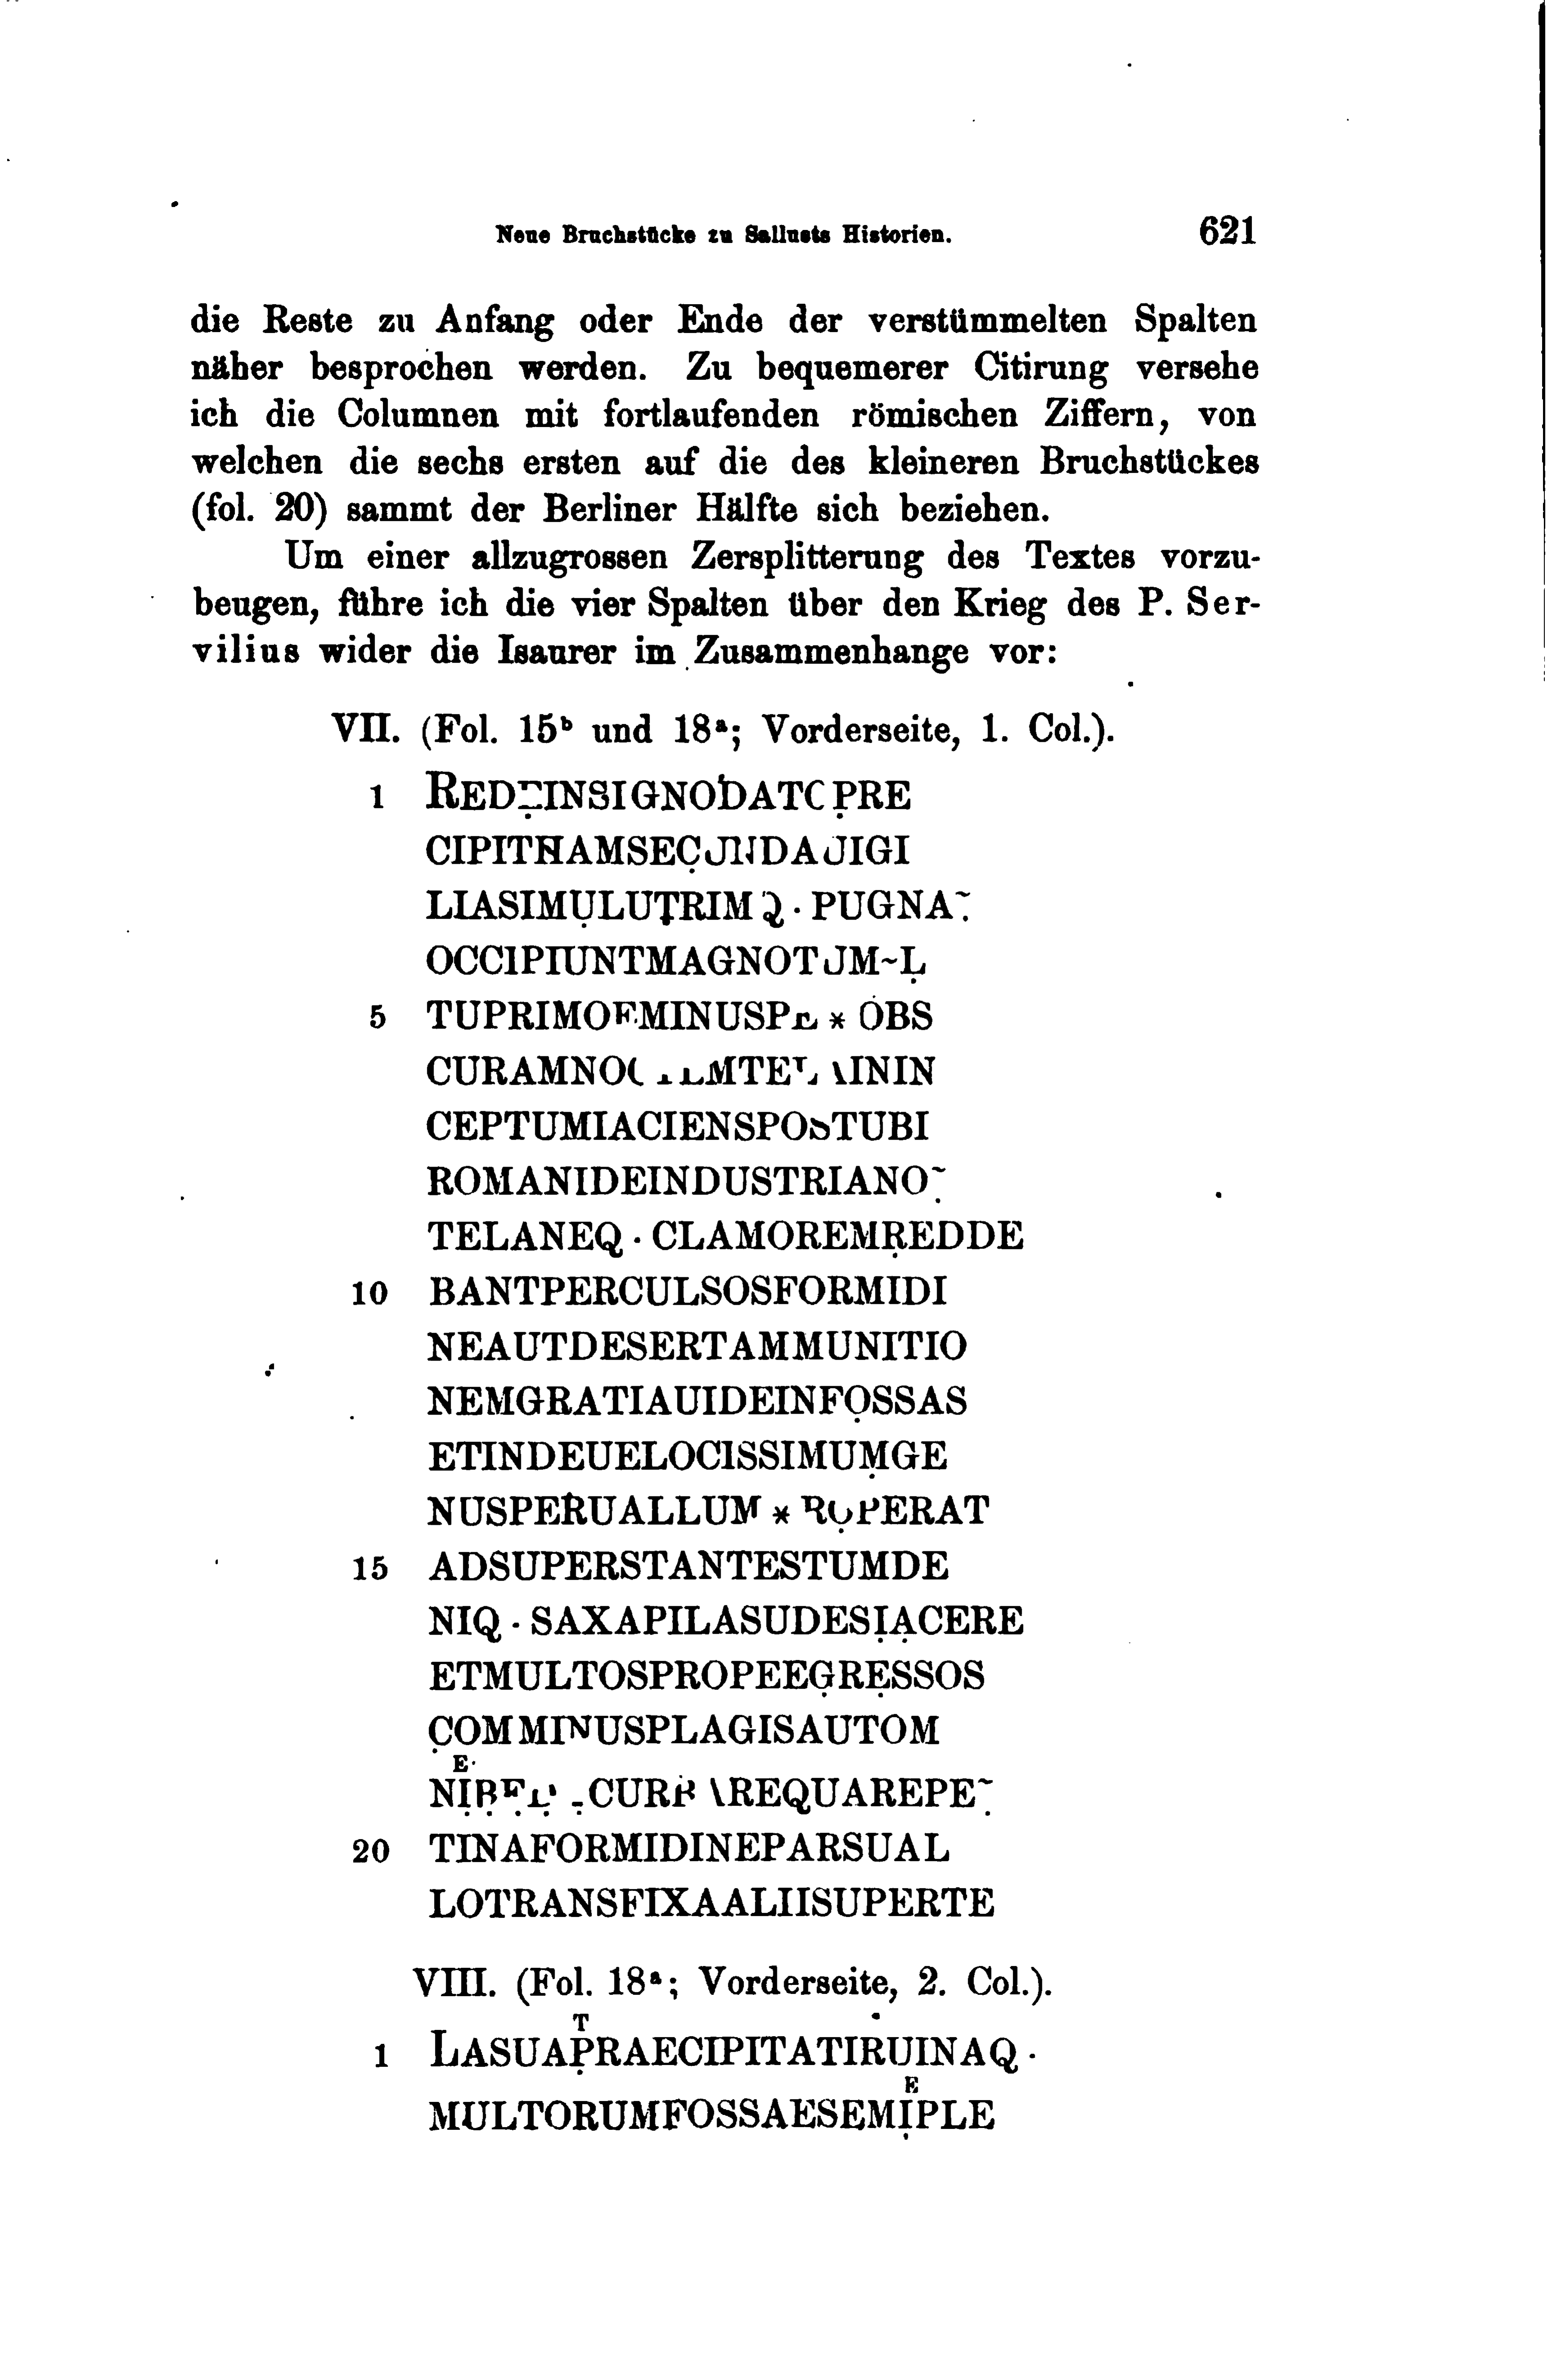 Neue Bruchstücke zu Sallusts Historien. 621
die Reste zu Anfang oder Ende der verstümmelten Spalten
näher besprochen werden. Zu bequemerer Citirung versehe
ich die Columnen mit fortlaufenden römischen Ziffern, von
welchen die sechs ersten auf die des kleineren Bruchstückes
(fol. 20) sammt der Berliner Hälfte sich beziehen.
Um einer allzugrossen Zersplitterung des Textes vorzu-
beugen, führe ich die vier Spalten über den Krieg des P. Ser-
vilius wider die Isaurer im Zusammenhange vor:
VII. (Fol. 15ᵇ und 18ᵃ; Vorderseite, 1. Col.).
1 REDEINSIGNODATOPRE
CIPITHAMSECUNDAUIGI
LIASIMULUTRIMQ · PUGNA~
OCCIPIUNTMAGNOTUM~L
5 TUPRIMOEMINUSPE * OBS
CURAMNOC
CEPTUMIACIENSPOSTUBI
ROMANIDEINDUSTRIANO~
TELANEQ · CLAMOREMREDDE
10 BANTPERCULSOSFORMIDI
NEAUTDESERTAMMUNITIO
NEMGRATIAUIDEINFOSSAS
ETINDEUELOCISSIMUMGE
NUSPERUALLUM * ROPERAT
15 ADSUPERSTANTESTUMDE
NIQ · SAXAPILASUDESIACERE
ETMULTOSPROPEEGRESSOS
COMMINUSPLAGISAUTOM
E
CURBAREQUAREPE~
20 TINAFORMIDINEPARSUAL
LOTRANSFIXAALIISUPERTE
VIII. (Fol. 18ᵃ; Vorderseite, 2. Col.).
T
1 LASUAPRAECIPITATIRUINAQ ·
E
MULTORUMFOSSAESEMIPLE